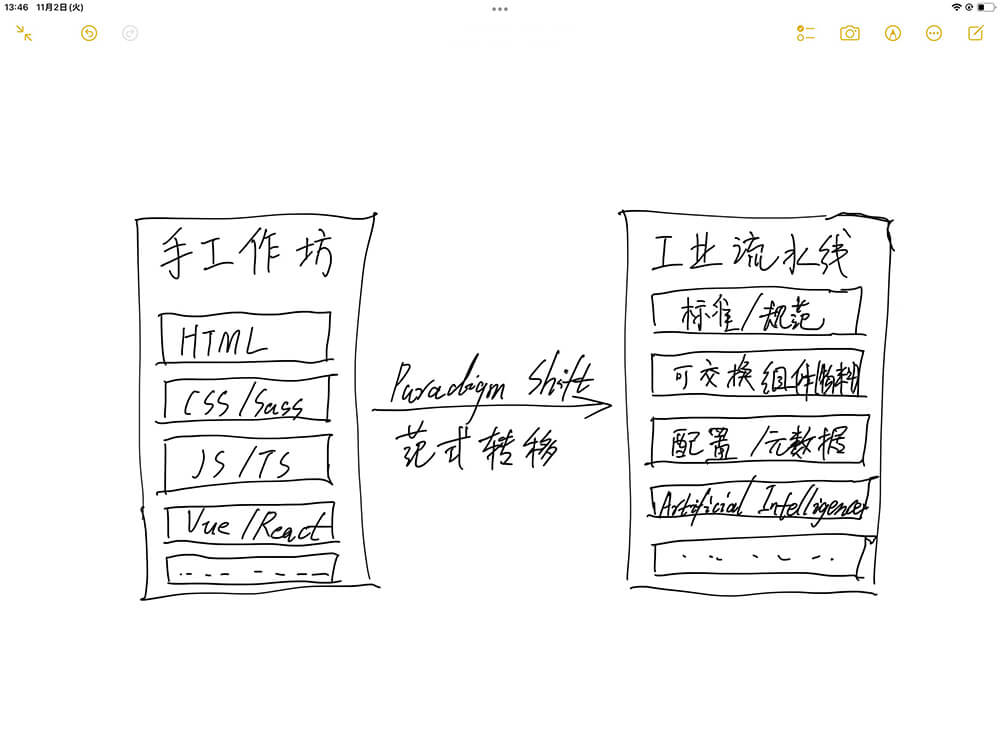 13:46 11月2日(火)
手工作坊
HTML
CSS/Sass
JS/TS
Vue/React
Paradigm Shift
范式转移
工业流水线
标准/规范
可交换组件/物料
配置/元数据
Artificial Intelligence